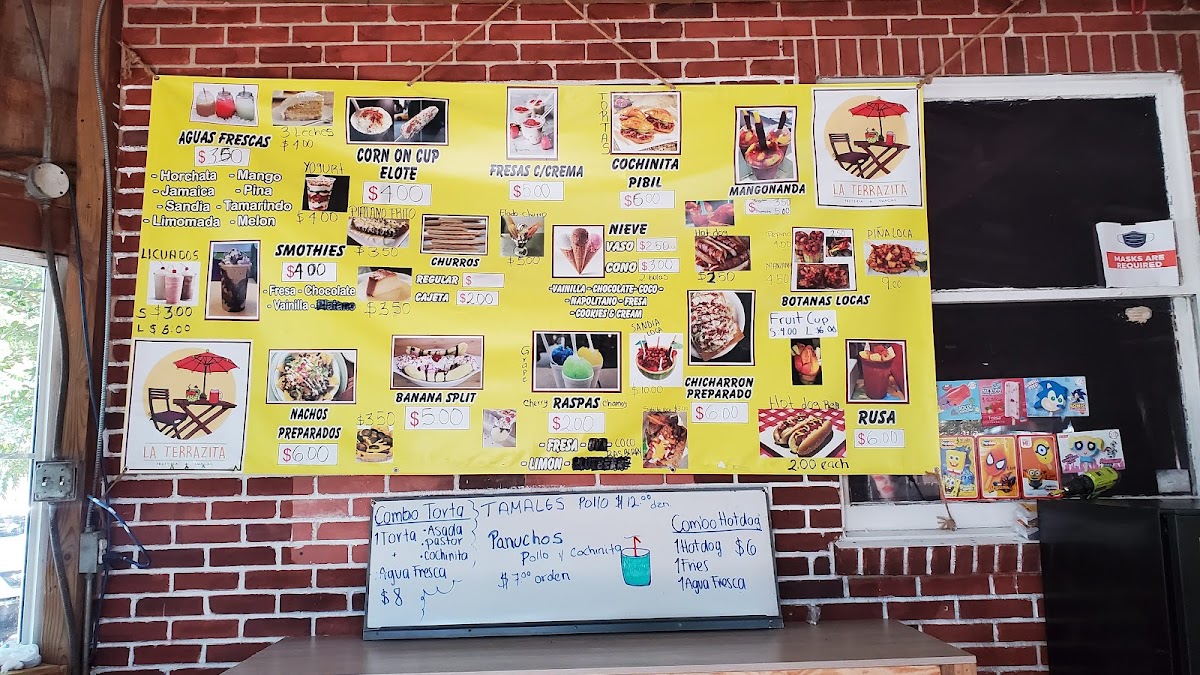 AGUAS FRESCAS
$ 3.50
- Horchata - Mango
- Jamaica - Pina
- Sandia - Tamarindo
- Limomada - Melon
3 Leches
$ 4.00
YOGURT
$ 4.00
CORN ON CUP
ELOTE
$4.00
FRESAS C/CREMA
$5.00
TORTAS
COCHINITA
PIBIL
$6.00
MANGONANDA
3.50
5.00
LA TERRAZITA
LICUADOS
S $3.00
L $6.00
SMOTHIES
$4.00
- Fresa - Chocolate
- Vainilla -
$3.50
$3.50
CHURROS
REGULAR $
CAJETA $2.00
$5.00
NIEVE
VASO $2.50
CONO $3.00
2 bolas
-VAINILLA - CHOCOLATE- COCO -
- NAPOLITANO - FRESA
- COOKIES & CREAM
Hot dog
$2.50
PIÑA LOCA
BOTANAS LOCAS
Fruit Cup
S 4.00 L $6.00
LA TERRAZITA
NACHOS
PREPARADOS
$6.00
$3.50
BANANA SPLIT
$5.00
Grape
Cherry RASPAS Chamoy
$2.00
- FRESA - COCO
- LIMON -
SANDIA
LOCA
$10.00
CHICHARRON
PREPARADO
$6.00
Hot dog
2.00 each
RUSA
$6.00
MASKS ARE
REQUIRED
Combo Torta
1 Torta · Asada
· pastor
+ · cochinita
Agua Fresca
$8
TAMALES Pollo $12.00 den
Panuchos
Pollo y Cochinita
$7.00 orden
Combo Hotdog
1 Hotdog $6
1 Fries
1 Agua Fresca